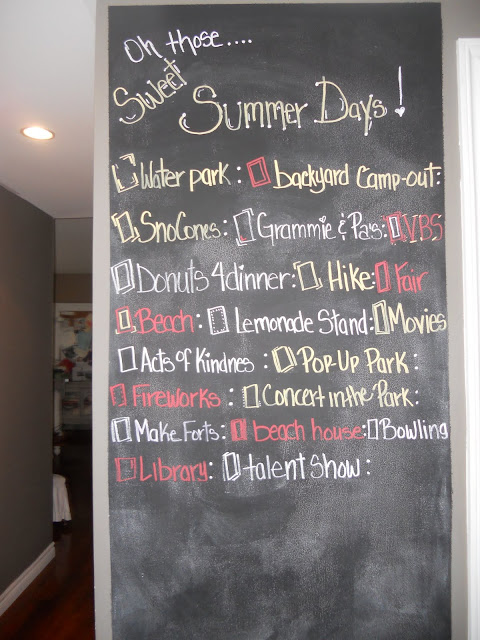 Oh those....
Sweet
Summer Days!
Water park: backyard Camp-out:
SnoCones: Grammie & Pa's: VBS
Donuts 4 dinner: Hike: Fair
Beach: Lemonade Stand: Movies
Acts of Kindness: Pop-Up Park:
Fireworks: Concert in the Park:
Make Forts: beach house: Bowling
Library: talent Show: